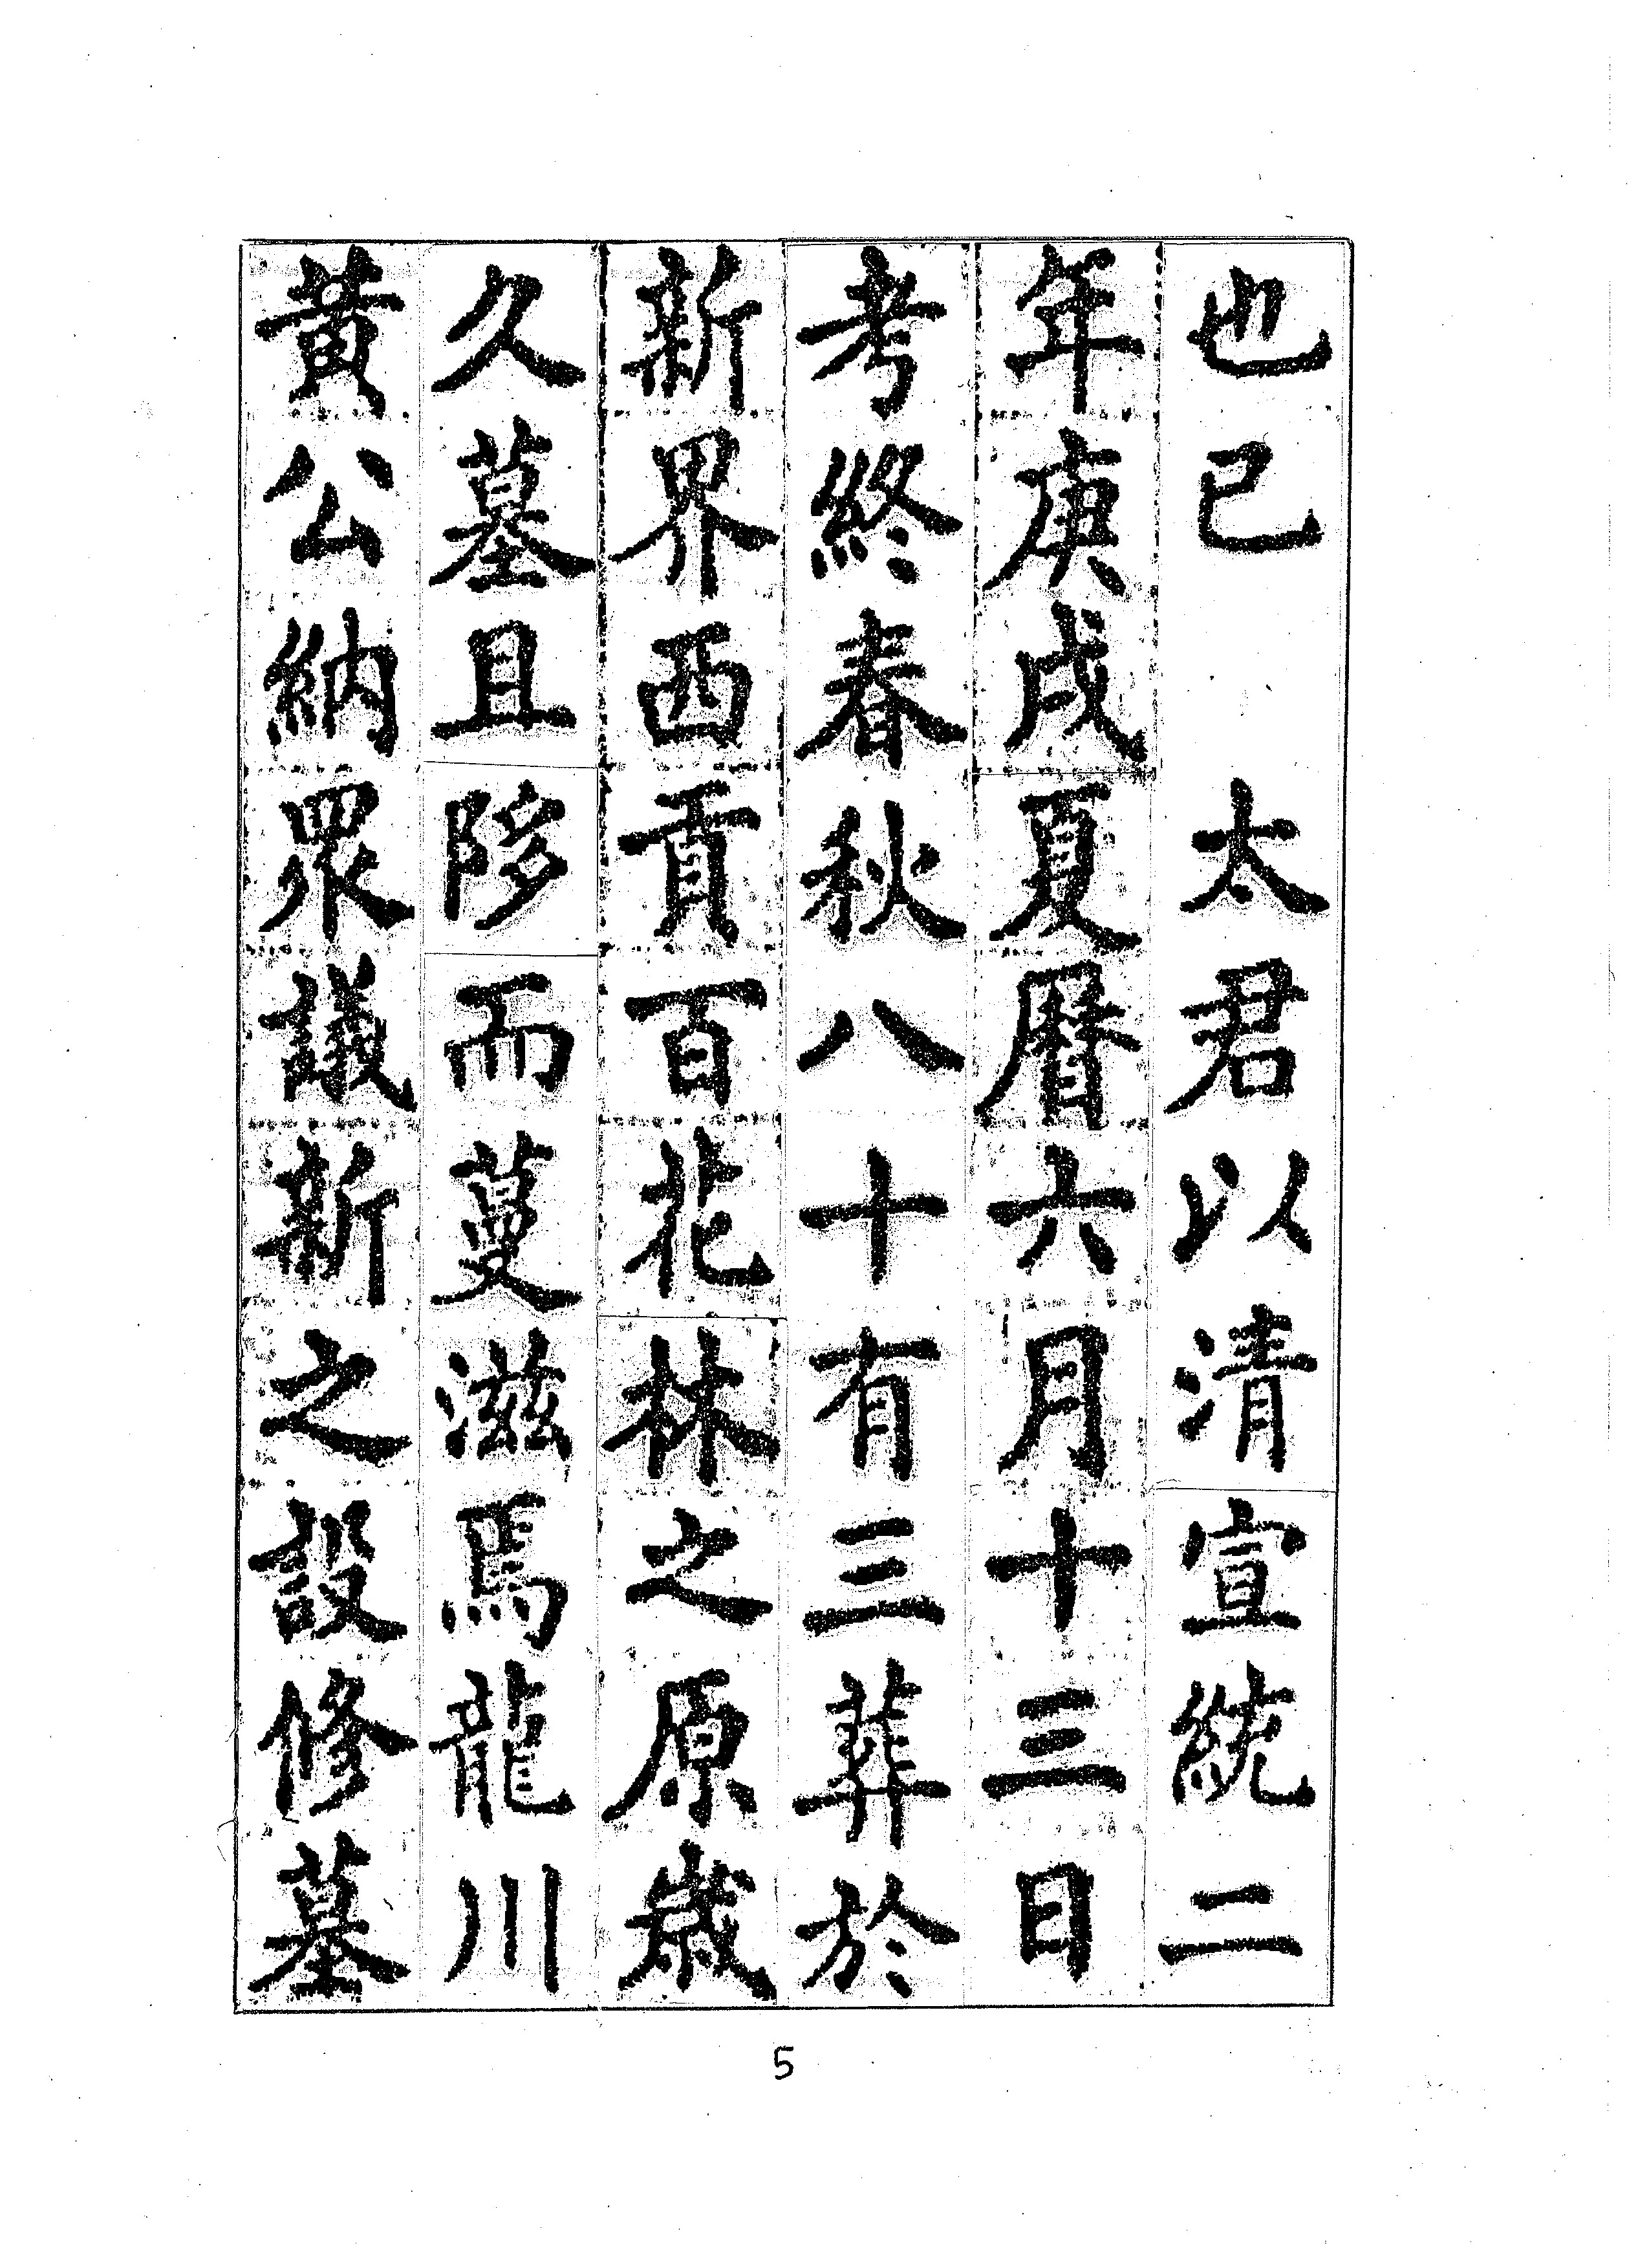 也已　太君以清宣統二
年庚戌夏曆六月十三日
考終春秋八十有三葬於
新界西貢百花林之原歲
久墓且陊而蔓滋焉龍川
黃公納眾議新之設修墓
5